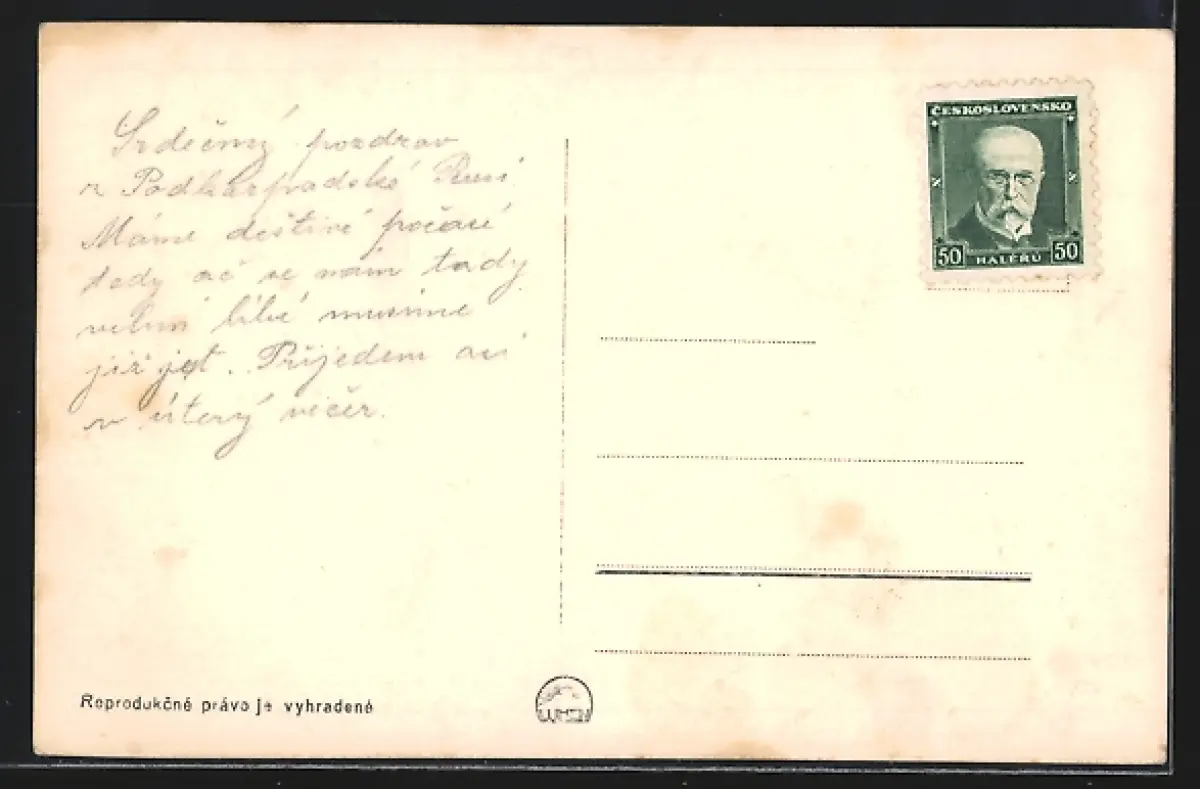 Srdečný pozdrav
z Podkarpadské Rusi.
Máme deštivé počasí
tedy ač se nám tady
velmi líbí musíme
již jet. Přijedem asi
v úterý večer.
ČESKOSLOVENSKO
50 HALÉŘŮ 50
Reprodukčné právo je vyhradené